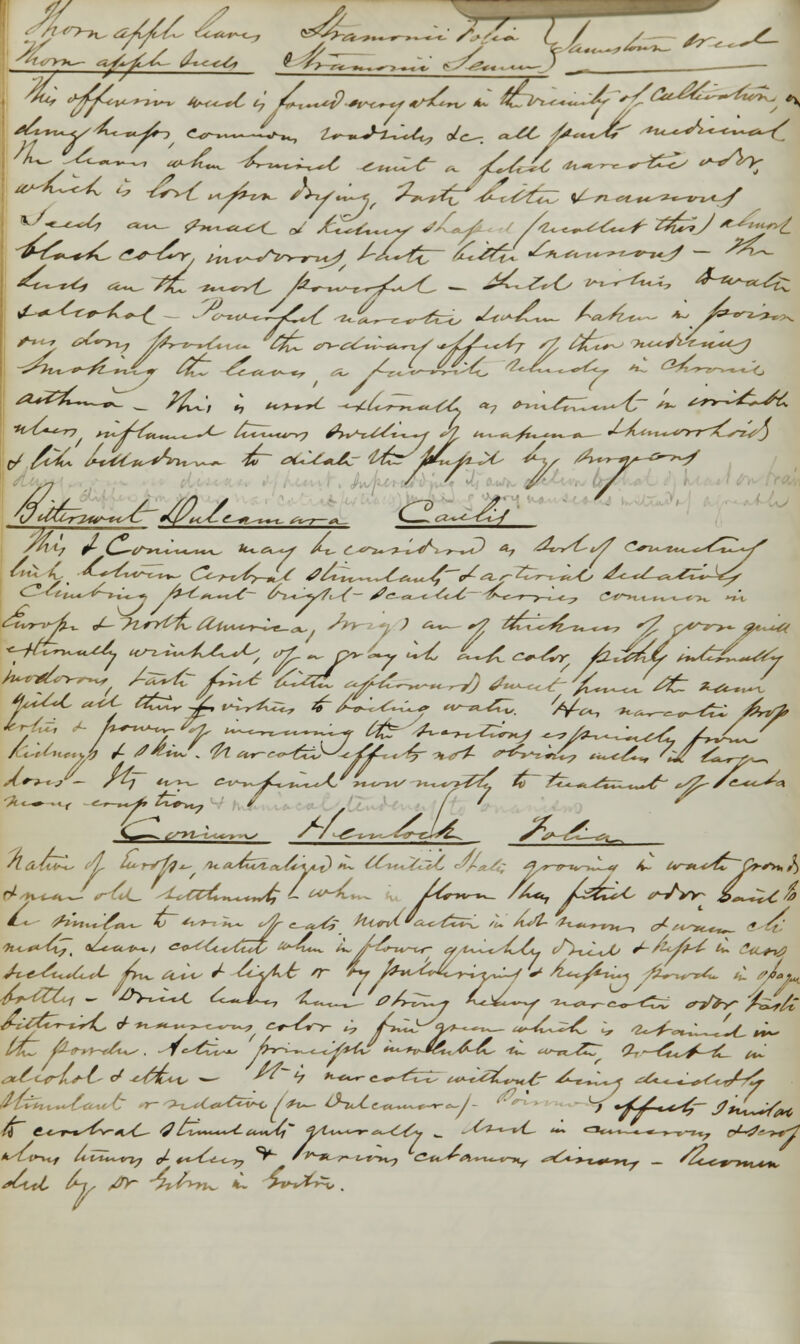 Thorn apple leaves Stramonii Folia } Jamestown weed
Thorn apple seeds Stramonii Semen }
This offensive weed is found every where in the vicinity of Cultivation, on
dung heaps, commons, roadsides &c. all parts medicinal
The leaves when bruised emit a fetid narcotic odor,
which is lost upon drying, Taste bitter & nauseous
Seeds are small & kidney shaped (recollect this) almost
black color, inodorous, taste bitter & nauseous — The
seeds are the most powerful — Yield virtues to water
& alcohol — Powerful narcotic & when taken in poison
ous doses produces the ordinary effects of these medicines
Smoking the leaves, a favorite remedy in Chronic
asthma — This is used externally as ointment in irritable
ulcers, inflamed tumors swelling of mammae & hemorrhoids
& like belladonna to dilate the pupil by surgeons
Bittersweet Dulcamara Caulis
This & Conium may be considered as sort of connecting
link between Cerebral Stimulants & arterial Sedatives
Climbing plant bright scarlet berries common in
Europe & North America, twigs are of thickness of goose quill
externally wrinkled, of a grayish ash color, pithy internally
inodorous, taste first bitter afterwards sweet, hence the name
yield all their virtues to boiling water. Has narcotic prop
erties & power of increasing the secretions especially from
Kidneys & Skin. Narcotic effects not obvious unless in large
doses — Its use confined now mostly to treatment of cuta
neous eruptions & maniacal tendency to onanism
Conium Hemlock Folia
Native of Europe, naturalized in United States growing in waste grounds
& near old settlements — when in flower has fetid odor said to
be similar to urine of cats. Most active in hot seasons & warm cli
mates. Leaves collected when in flower quickly dried & kept in cans
secluded from air & light or by pulverizing & keeping powder in opaque
bottles — Dried leaves have strong heavy narcotic odor taste
bitterish & nauseous, color is fine green which is retained in
the powder. Active principle insoluble in water, Soluble in
alcohol & ether — It is narcotic without being decidedly
Stimulant or sedative (see Dulcamara) — Poisonous effects Similar
to cerebral Stimulants generally — Used in cancerous & scrof
ulous tumors & ulcers & various cutaneous diseases — Recommen
ded by Dr Gibson in Goitre.